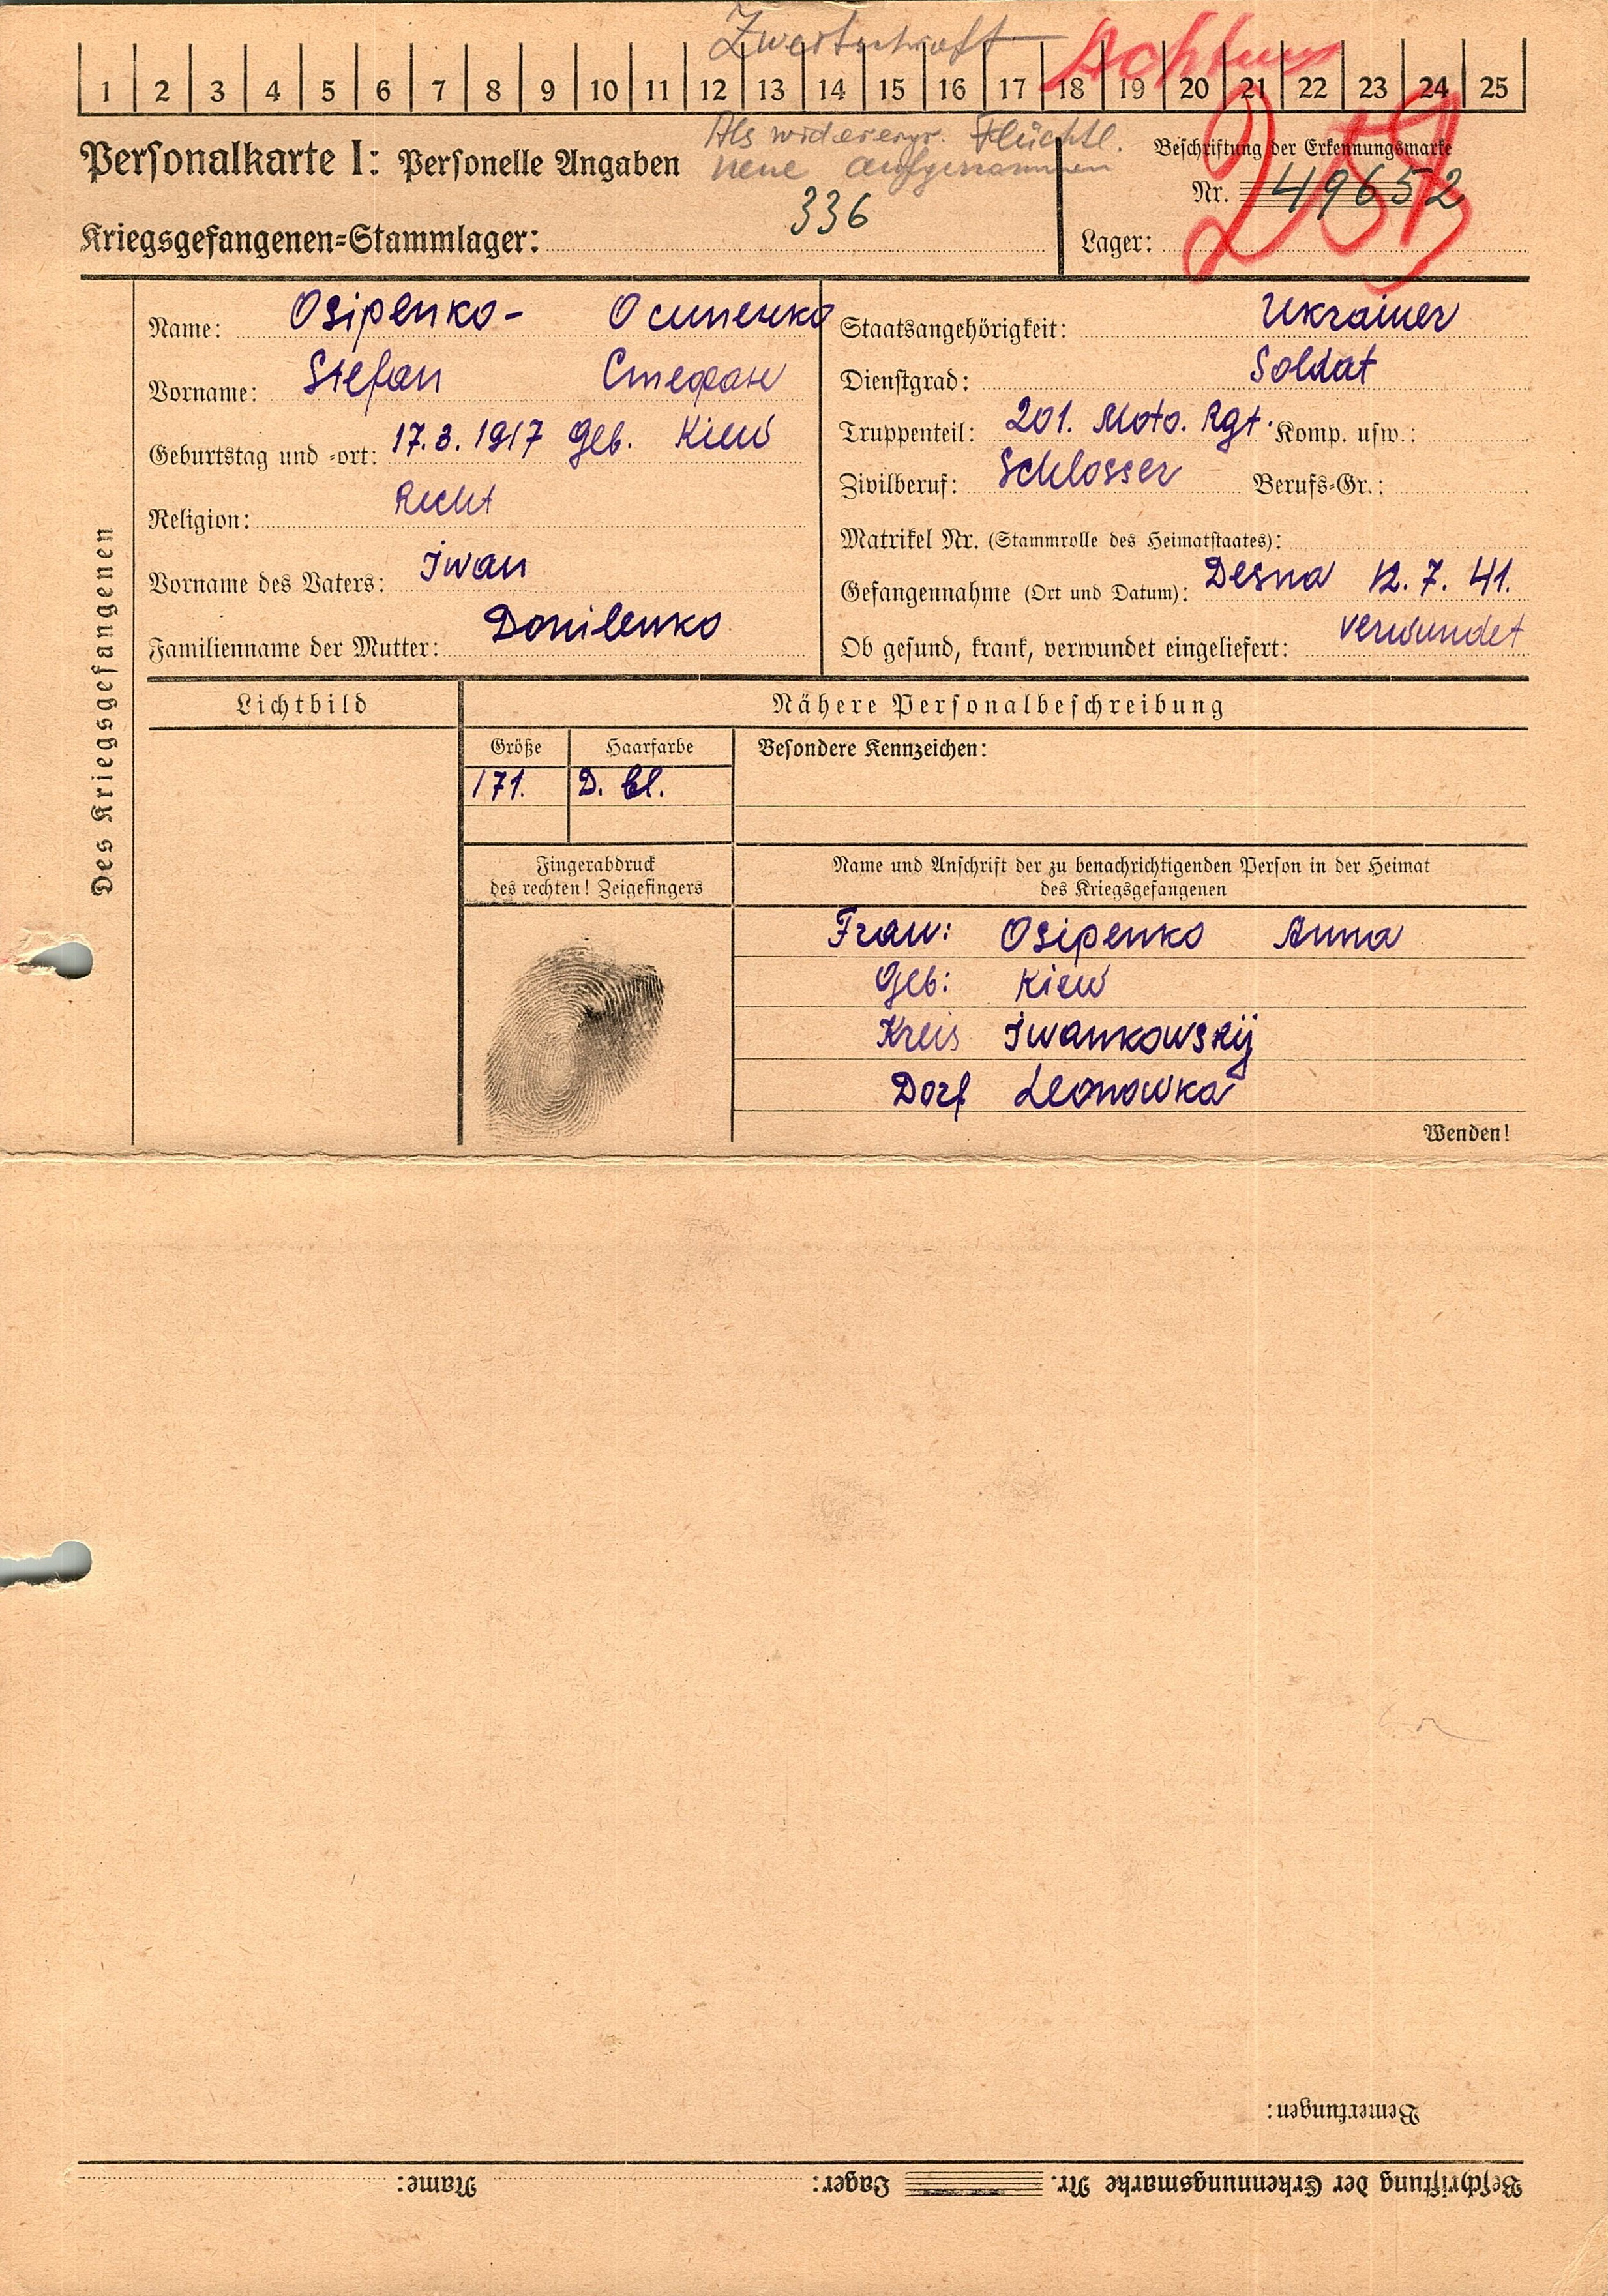 Zweitschrift Achtung
1 2 3 4 5 6 7 8 9 10 11 12 13 14 15 16 17 18 19 20 21 22 23 24 25
Als widerergr. Flüchtl.
neue aufgenommen
Personalkarte I: Personelle Angaben
Beschriftung der Erkennungsmarke
Nr. 49652
336
Kriegsgefangenen-Stammlager:
Lager:
Des Kriegsgefangenen
Name: Osipenko- Осипенко
Vorname: Stefan Стефан
Geburtstag und -ort: 17.3.1917 Geb. Kiew
Religion:
Vorname des Vaters: Iwan
Familienname der Mutter: Donilenko
Staatsangehörigkeit: Ukrainer
Dienstgrad: Soldat
Truppenteil: 201. Moto. Rgt. Komp. usw.:
Zivilberuf: Schlosser Berufs-Gr.:
Matrikel Nr. (Stammrolle des Heimatstaates):
Gefangennahme (Ort und Datum): Desna 12.7.41.
Ob gesund, krank, verwundet eingeliefert: verwundet
Lichtbild
Nähere Personalbeschreibung
Größe Haarfarbe Besondere Kennzeichen:
171. D. bl.
Fingerabdruck
des rechten! Zeigefingers
Name und Anschrift der zu benachrichtigenden Person in der Heimat
des Kriegsgefangenen
Frau: Osipenko Anna
Geb: Kiew
Kreis Iwankowskij
Dorf Leonowka
Wenden!
Bemerkungen:
Beschriftung der Erkennungsmarke Nr. Lager: Name: